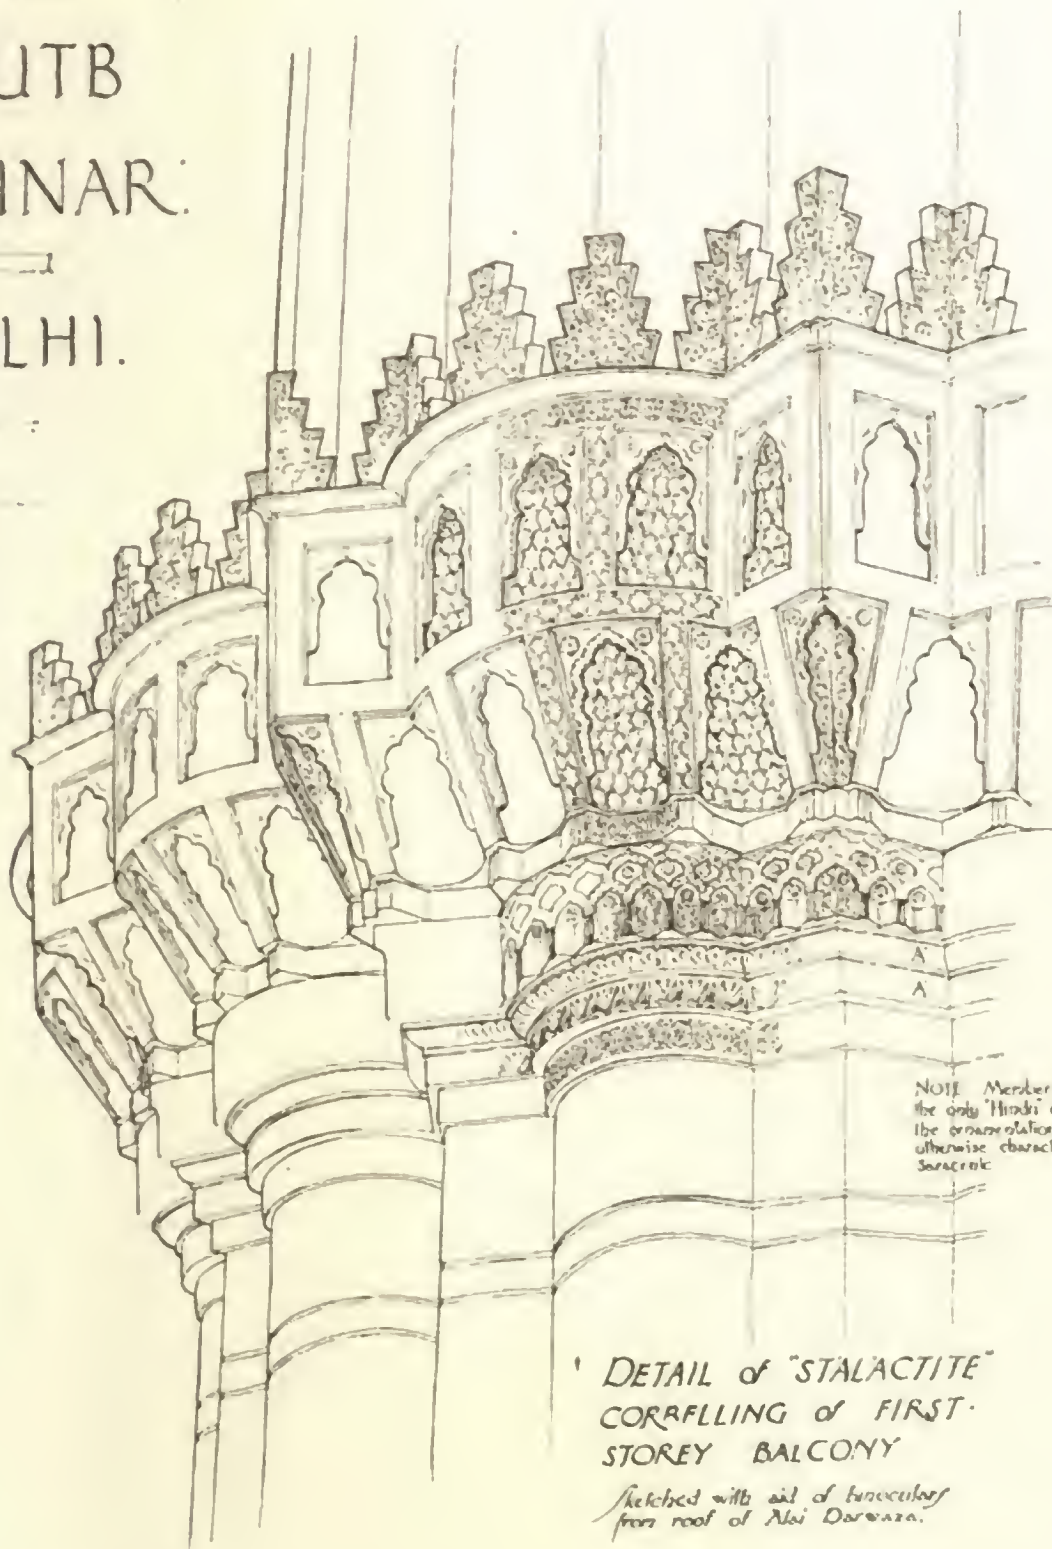 UTB
INAR.
LHI.
A
A
NOTE Member
the only "Hindu"
the ornamentation
otherwise charac
Saracenic
DETAIL of "STALACTITE"
CORBELLING of FIRST-
STOREY BALCONY
Sketched with aid of binoculars
from roof of Alai Darwaza.